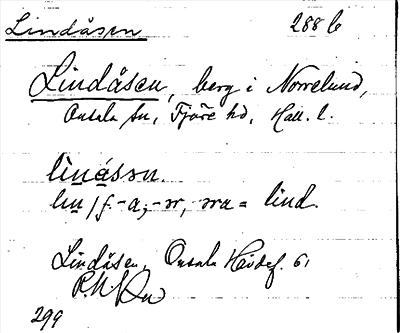 Lindåsen 288 b
Lindåsen, berg i Norrelund,
Onsala sn, Fjäre hd, Hall. l.
lìnásən.
lin / f. -a, -ər, -əra = lind.
Lindåsen, Onsala Hävdef. 61
299